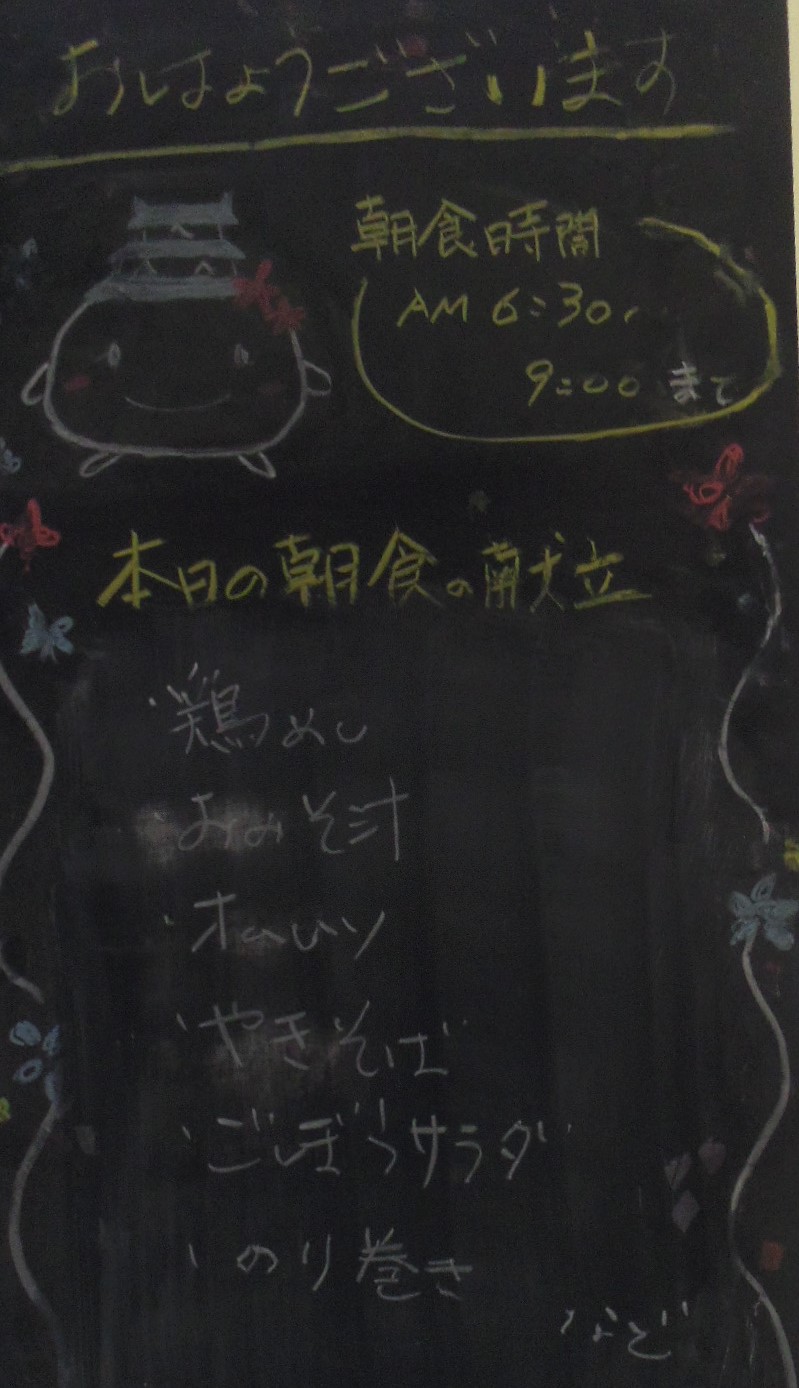 おはようございます
朝食時間
AM 6:30~
9:00 まで
本日の朝食の献立
・鶏めし
・おみそ汁
・オムレツ
・やきそば
・ごぼうサラダ
・のり巻き
など